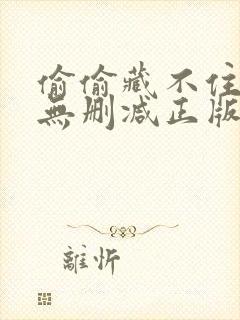 偷偷藏不住
無删减正版
離忻